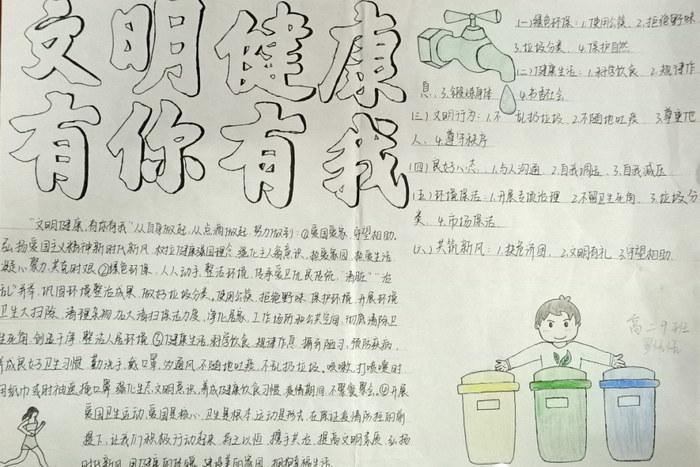 文明健康
有你有我
(一)绿色环保:1.使用公筷、2.拒绝野味
3.垃圾分类、4.保护自然
(二)健康生活:1.科学饮食、2.规律作
息、3.锻炼身体、4.
(三)文明行为:1.不乱扔垃圾、2.不随地吐痰、3.尊重他
人、4.遵守秩序
(四)良好心态:1.与人沟通、2.自我调适、3.自我减压
(五)环境保洁:1.开展专项治理、2.不留卫生死角、3.垃圾分
类、4.市场保洁
(六)共筑新风:1.扶危济困、2.文明有礼、3.守望相助.
“文明健康,有你有我”从自身做起,从点滴做起,努力做到:①爱国爱家,守望相助.
弘扬爱国主义精神新时代新风,树立健康强国理念,强化主人翁意识,热爱家园,热爱生活
凝心聚力,共克时艰.②绿色环保,人人动手,整治环境,传承爱卫优良传统,“清脏”“治
乱”并举,巩固环境整治成果,做好垃圾分类,使用公筷,拒绝野味,保护环境,开展环境
卫生大扫除,清理杂物,加大清扫保洁力度,净化居家、工作场所和公共空间,彻底清除卫
生死角,创造干净、整洁人居环境.③健康生活,科学饮食,规律作息,摒弃陋习,预防疾病,
养成良好卫生习惯,勤洗手,戴口罩,勤通风,不随地吐痰,不乱扔垃圾,咳嗽、打喷嚏时
用纸巾或肘袖遮掩口鼻,强化生态文明意识,养成健康饮食习惯,疫情期间,不聚餐聚会.④开展
爱国卫生运动,爱国是核心,卫生是根本,运动是形式,在保证疫情防控的前
提下,让我们积极行动起来,持之以恒,携手共治,提高文明素质,弘扬
时代新风,用健康的体魄,建设美丽家园,拥抱幸福生活.
高二9班